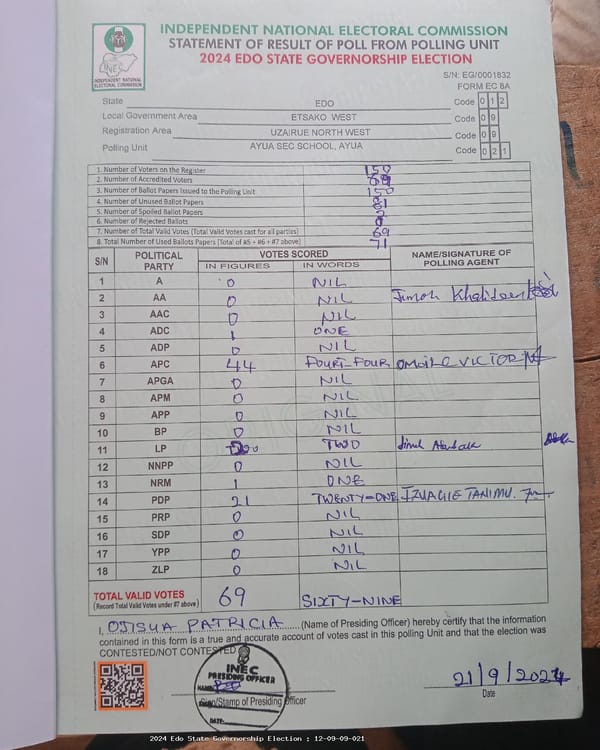 INDEPENDENT NATIONAL ELECTORAL COMMISSION
STATEMENT OF RESULT OF POLL FROM POLLING UNIT
2024 EDO STATE GOVERNORSHIP ELECTION
INEC
INDEPENDENT NATIONAL
ELECTORAL COMMISSION
S/N: EG/0001832
FORM EC 8A
State EDO Code 0 1 2
Local Government Area ETSAKO WEST Code 0 9
Registration Area UZAIRUE NORTH WEST Code 0 9
Polling Unit AYUA SEC SCHOOL, AYUA Code 0 2 1
1. Number of Voters on the Register 150
2. Number of Accredited Voters
3. Number of Ballot Papers Issued to the Polling Unit 150
4. Number of Unused Ballot Papers 81
5. Number of Spoiled Ballot Papers
6. Number of Rejected Ballots
7. Number of Total Valid Votes (Total Valid Votes cast for all parties) 69
8. Total Number of Used Ballots Papers (Total of #5 + #6 + #7 above) 71
S/N POLITICAL PARTY VOTES SCORED NAME/SIGNATURE OF POLLING AGENT
IN FIGURES IN WORDS
1 A 0 NIL
2 AA 0 NIL Jimoh
3 AAC 0 NIL
4 ADC 1 ONE
5 ADP 0 NIL
6 APC 44 FOURT-FOUR VICTOR
7 APGA 0 NIL
8 APM 0 NIL
9 APP 0 NIL
10 BP 0 NIL
11 LP TWO
12 NNPP 0 NIL
13 NRM 1 ONE
14 PDP 21 TWENTY-ONE IZUAGIE TANIMU.
15 PRP 0 NIL
16 SDP 0 NIL
17 YPP 0 NIL
18 ZLP 0 NIL
TOTAL VALID VOTES 69 SIXTY-NINE
(Record Total Valid Votes under #7 above)
I, OJISUA PATRICIA (Name of Presiding Officer) hereby certify that the information
contained in this form is a true and accurate account of votes cast in this polling Unit and that the election was
CONTESTED/NOT CONTESTED
INEC
PRESIDING OFFICER
NAME:
DATE:
Sign/Stamp of Presiding Officer
21/9/2024
Date
2024 Edo State Governorship Election : 12-09-09-021